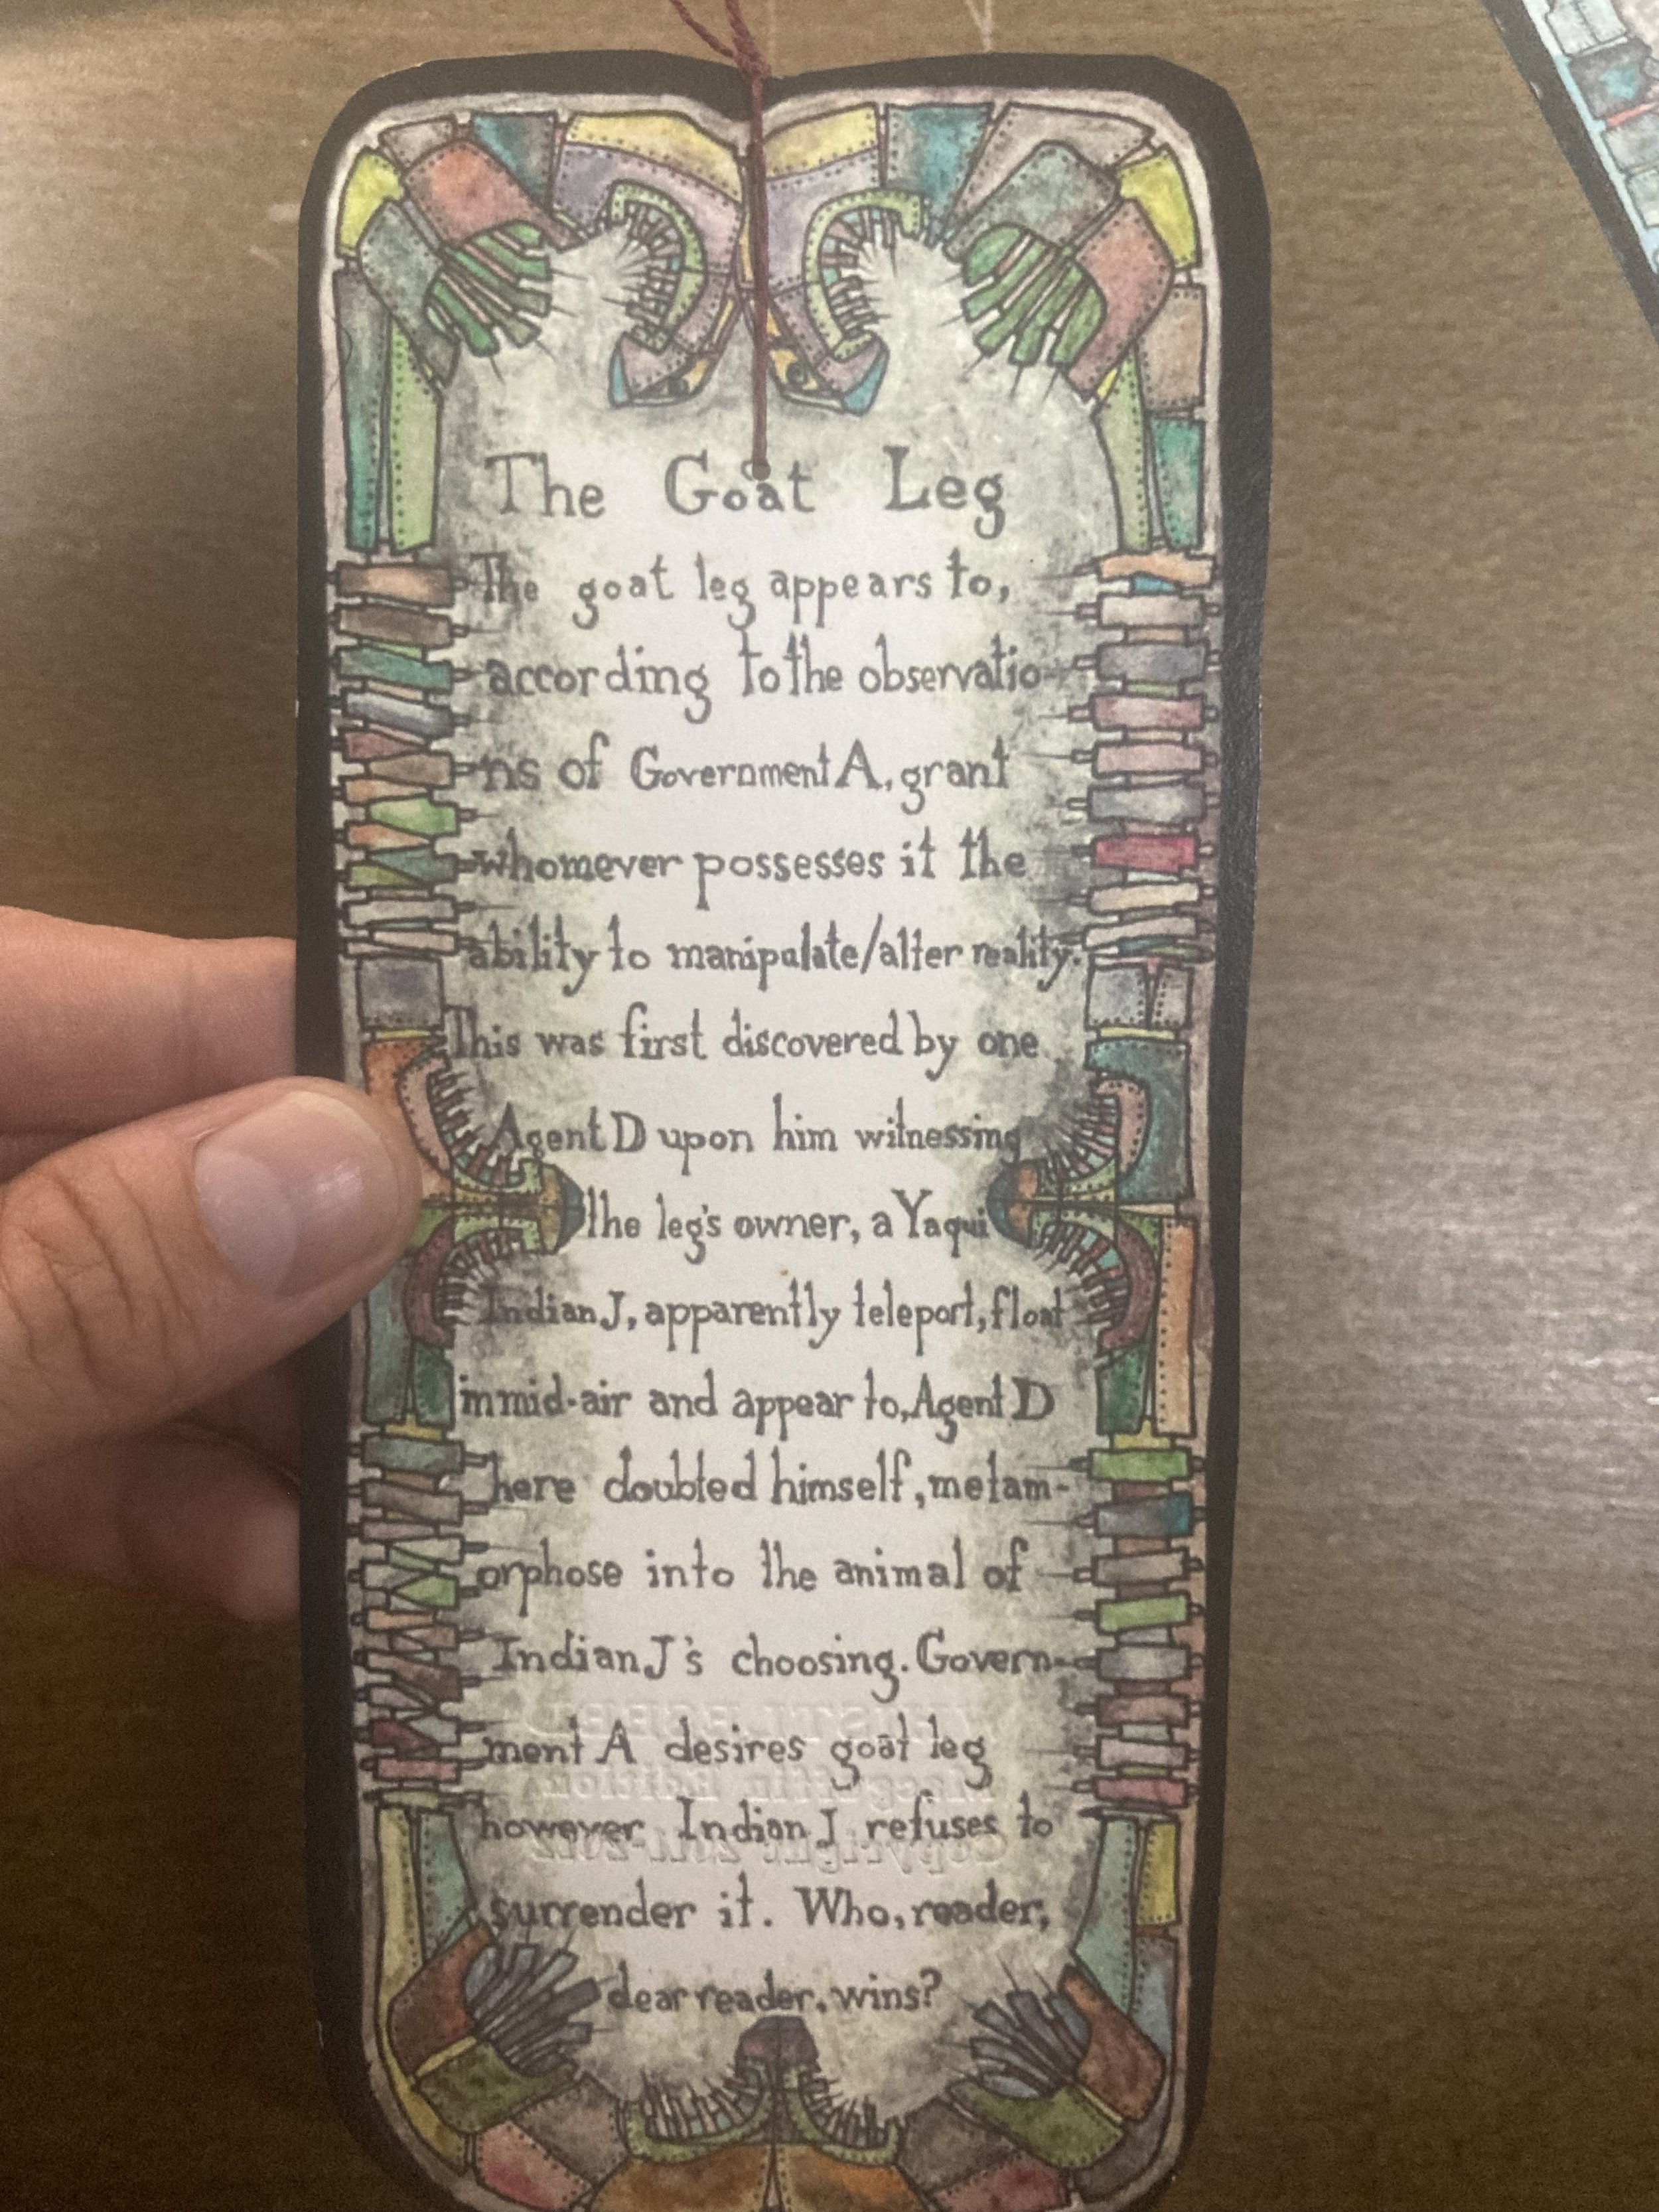 The Goat Leg
The goat leg appears to,
according to the observatio-
ns of Government A, grant
whomever possesses it the
ability to manipulate/alter reality.
This was first discovered by one
Agent D upon him witnessing
the leg's owner, a Yaqui
Indian J, apparently teleport, float
in mid-air and appear to, Agent D
here doubted himself, metam-
orphose into the animal of
Indian J's choosing. Govern-
ment A desires goat leg
however Indian J refuses to
surrender it. Who, reader,
dear reader, wins?